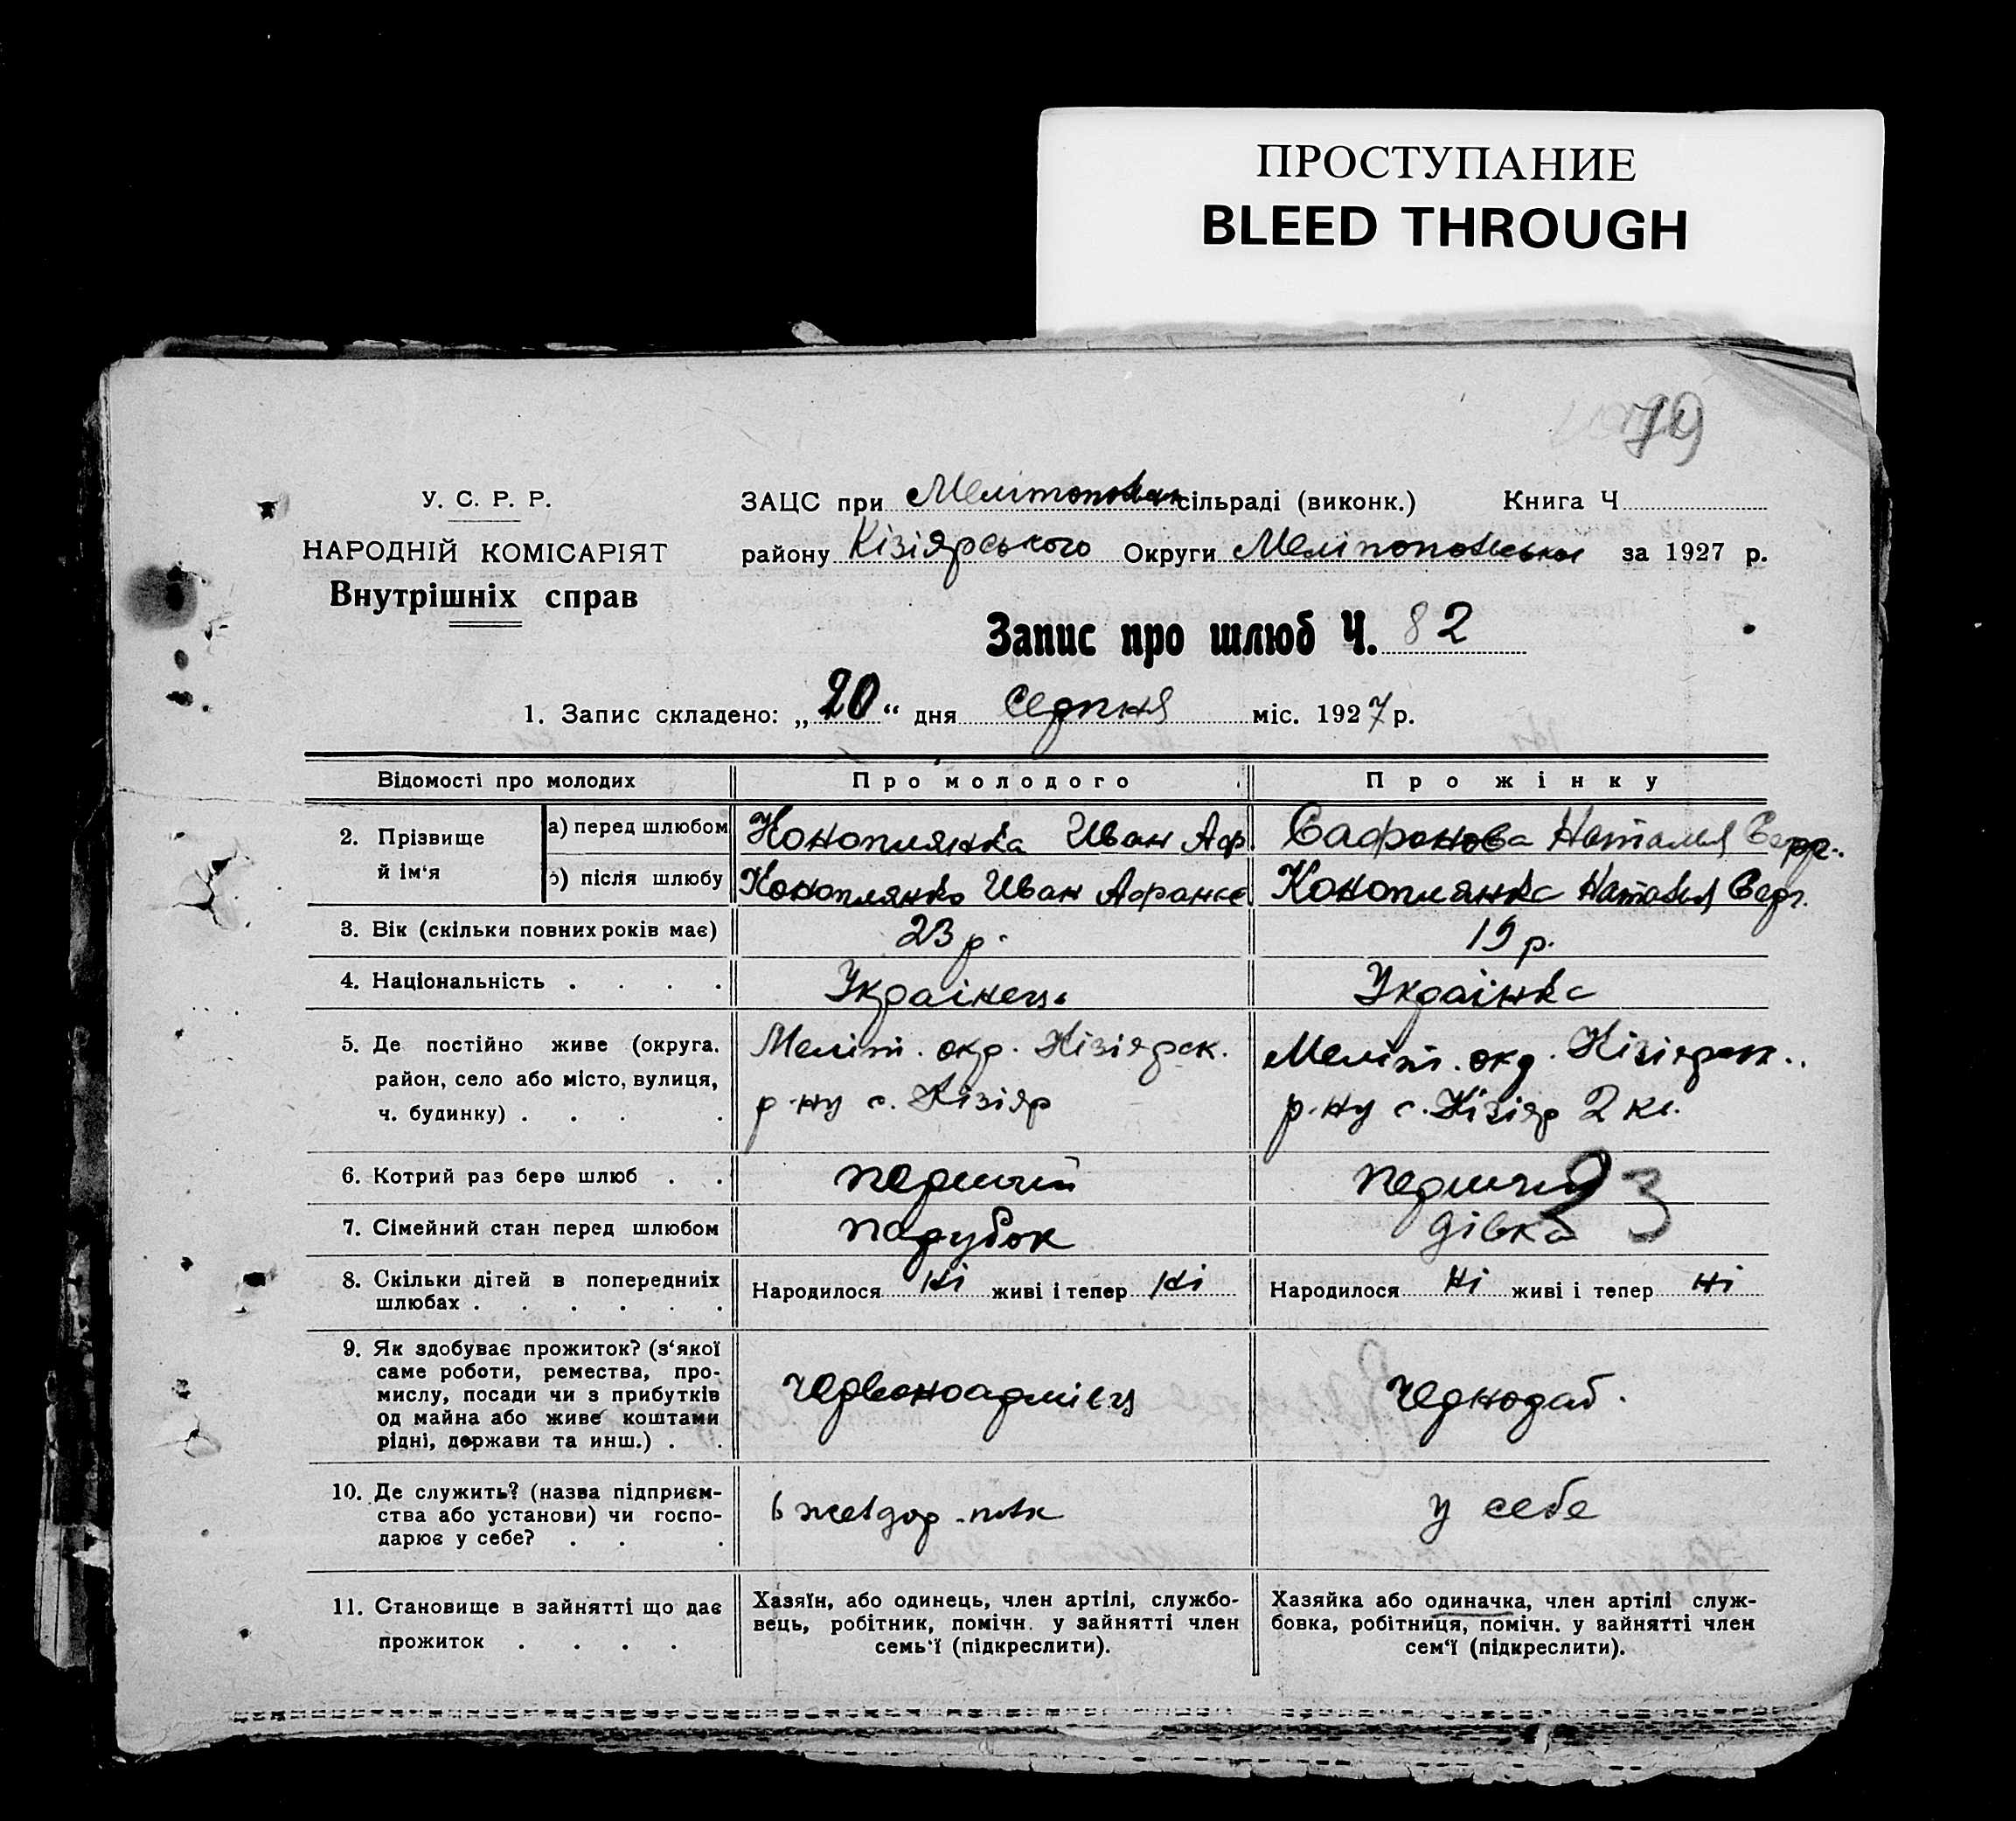 ПРОСТУПАНИЕ
BLEED THROUGH
79
У. С. Р. Р.
НАРОДНІЙ КОМІСАРІЯТ
Внутрішніх справ
ЗАЦС при сільраді (виконк.) Книга Ч
району Кізіярського Округи Мелітопольської за 1927 р.
Запис про шлюб Ч. 82
1. Запис складено: „20“ дня серпня міс. 1927 р.
Відомості про молодих
Про молодого
Про жінку
2. Прізвище й ім‘я
а) перед шлюбом
Коноплянка Иван Аф
Сафонова Наталия
б) після шлюбу
Коноплянко Иван Афанас
Коноплянко Наталия Серг.
3. Вік (скільки повних років має)
23 р.
19 р.
4. Національність . . . .
Українець
Українка
5. Де постійно живе (округа,
район, село або місто, вулиця,
ч. будинку) . . . .
Меліт. окр. Кізіярск.
р-ну с. Кізіяр
Меліт. окр. Кізіярск.
р-ну с. Кізіяр 2 кл.
6. Котрий раз бере шлюб . .
перший
перший
93
7. Сімейний стан перед шлюбом
парубок
дівка
8. Скільки дітей в попередниіх
шлюбах . . . . . .
Народилося Ні живі і тепер Ні
Народилося Ні живі і тепер Ні
9. Як здобуває прожиток? (з‘якої
саме роботи, ремества, про-
мислу, посади чи з прибутків
од майна або живе коштами
рідні, держави та инш.) . .
червоноармієц
чорнораб.
10. Де служить? (назва підприєм-
ства або установи) чи госпо-
дарює у себе? . . .
у себе
11. Становище в зайнятті що дає
прожиток . . . .
Хазяїн, або одинець, член артілі, службо-
вець, робітник, помічн. у зайнятті член
семь‘ї (підкреслити).
Хазяйка або одиначка, член артілі служ-
бовка, робітниця, помічн. у зайнятті член
сем‘ї (підкреслити).